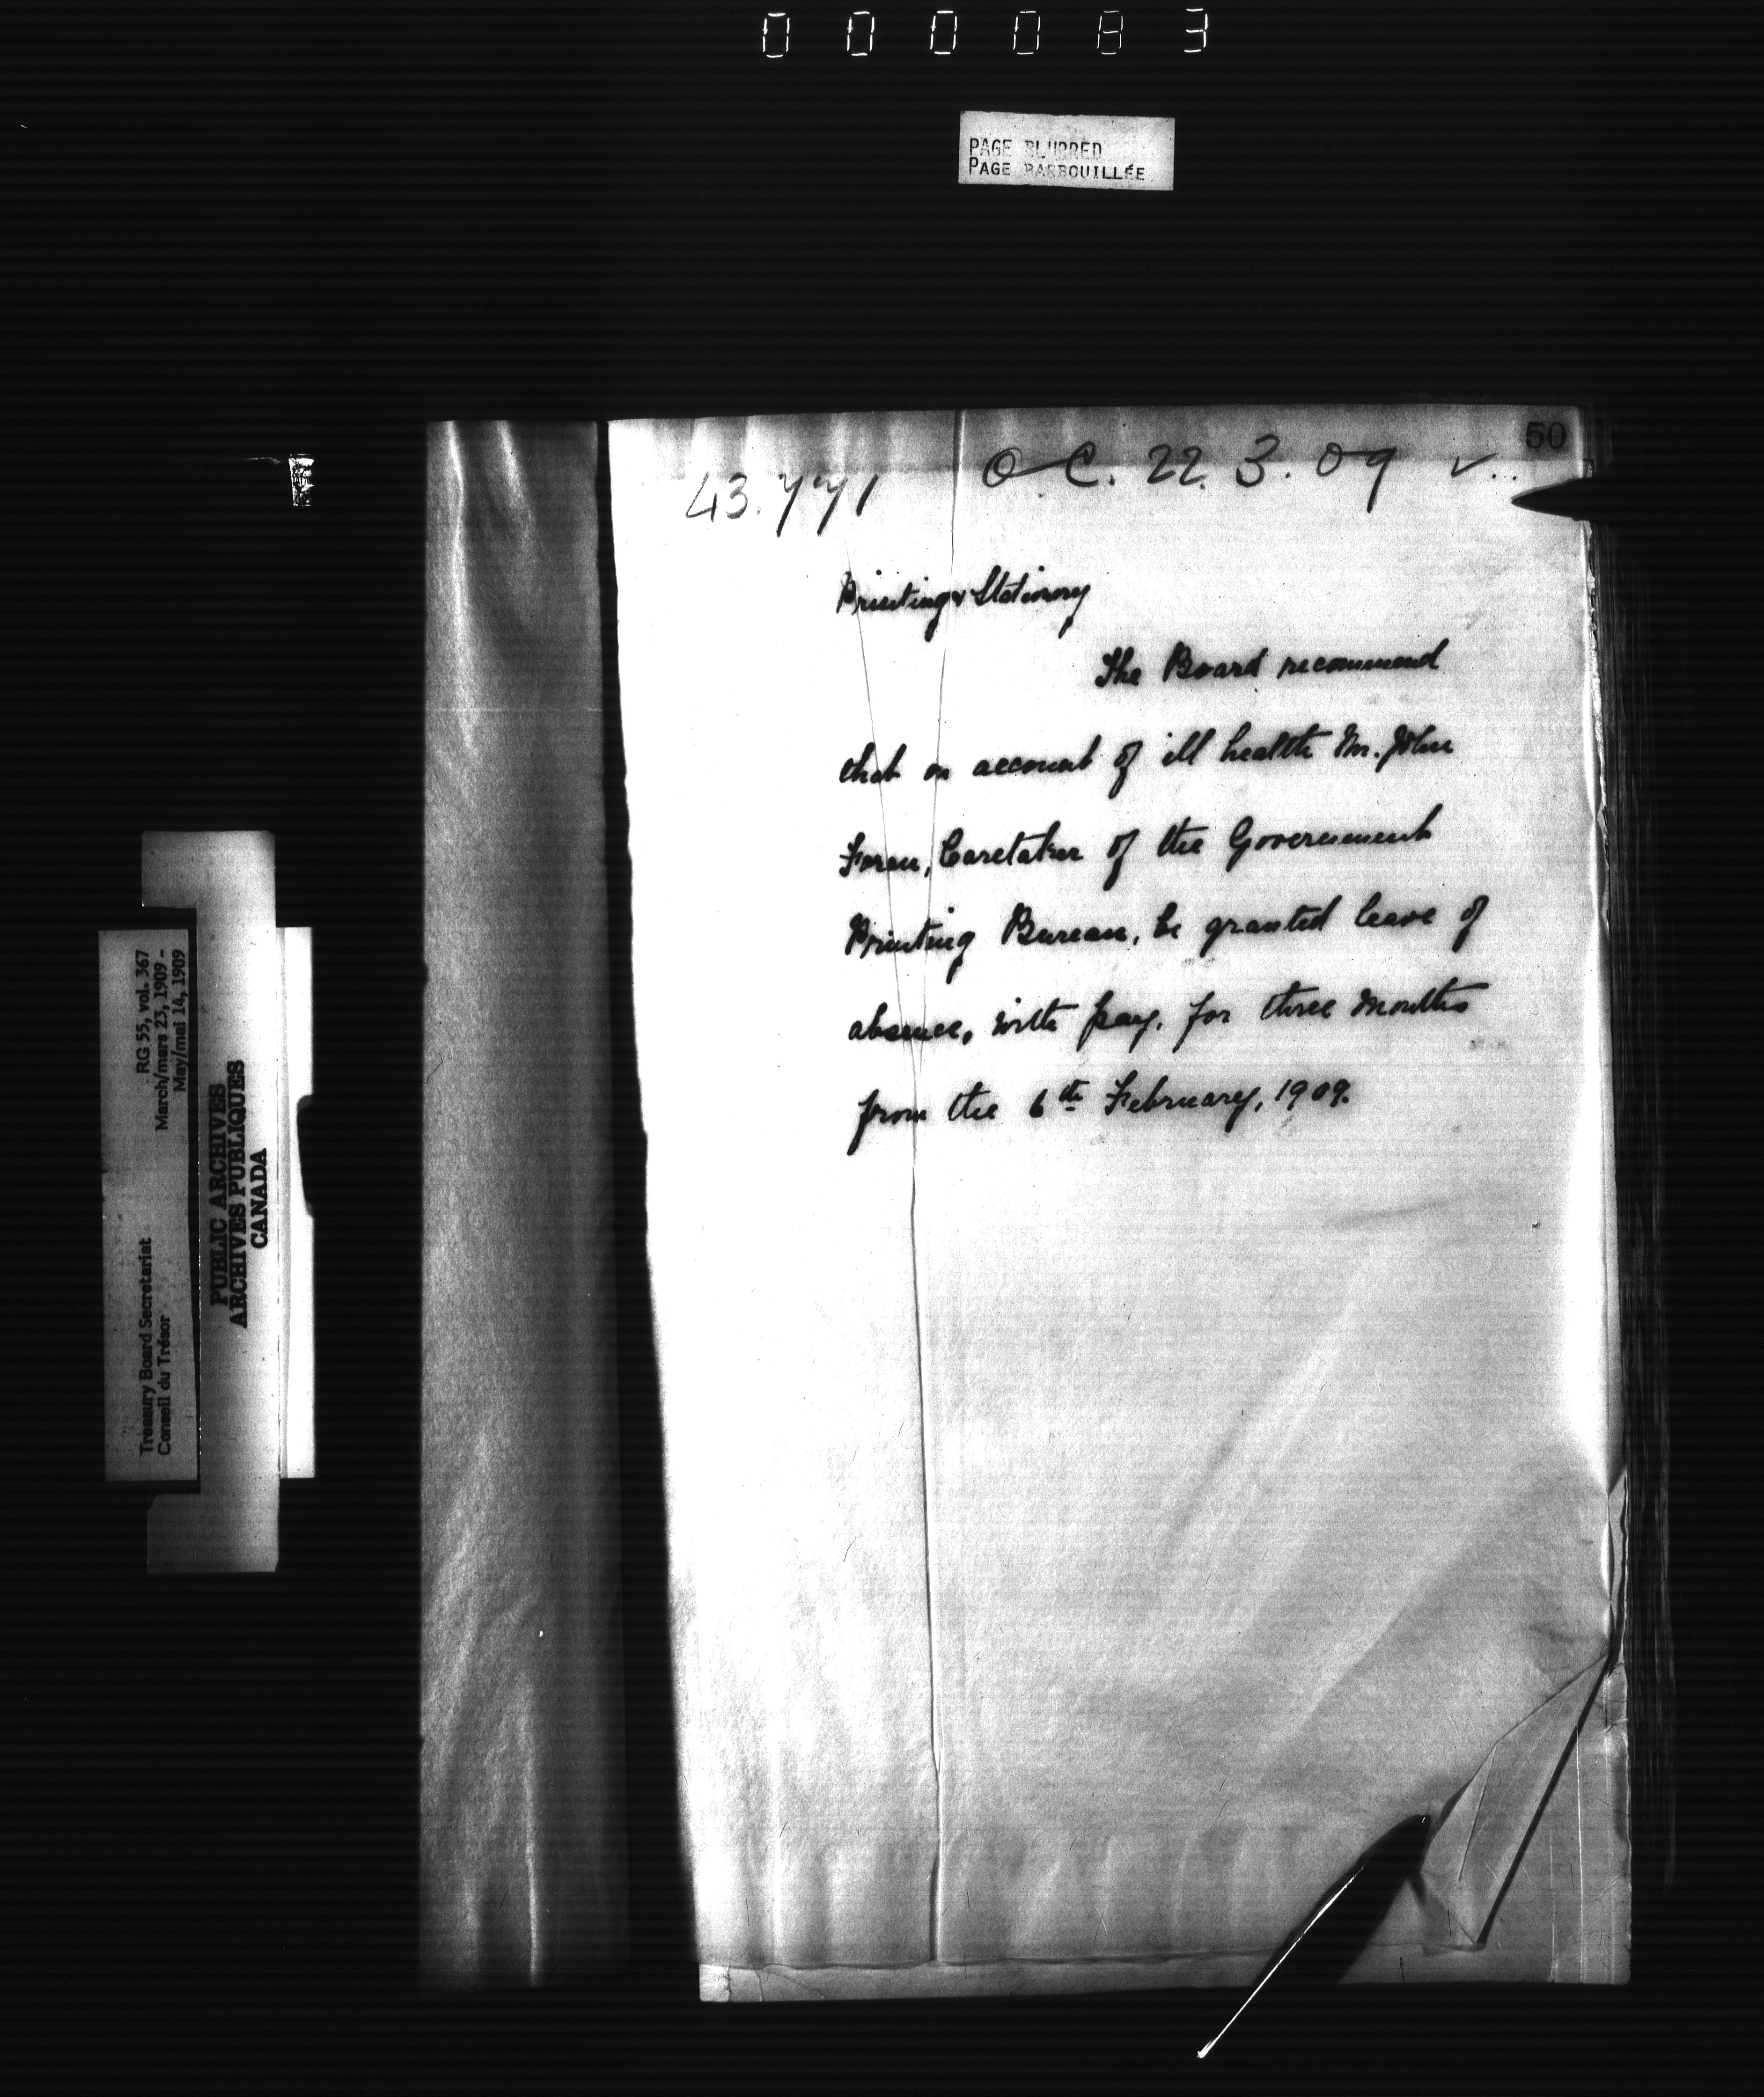 000083
PAGE BLURRED
PAGE BARBOUILLÉE
50
O.C. 22.3.09
43.771
Printing & Stationery
The Board recommend
that on account of ill health Mr. John
Foran, Caretaker of the Government
Printing Bureau, be granted leave of
absence, with pay, for three months
from the 6th February, 1909.
RG 55, vol. 367
March/mars 23, 1909 -
May/mai 14, 1909
Treasury Board Secretariat
Conseil du Trésor
PUBLIC ARCHIVES
ARCHIVES PUBLIQUES
CANADA